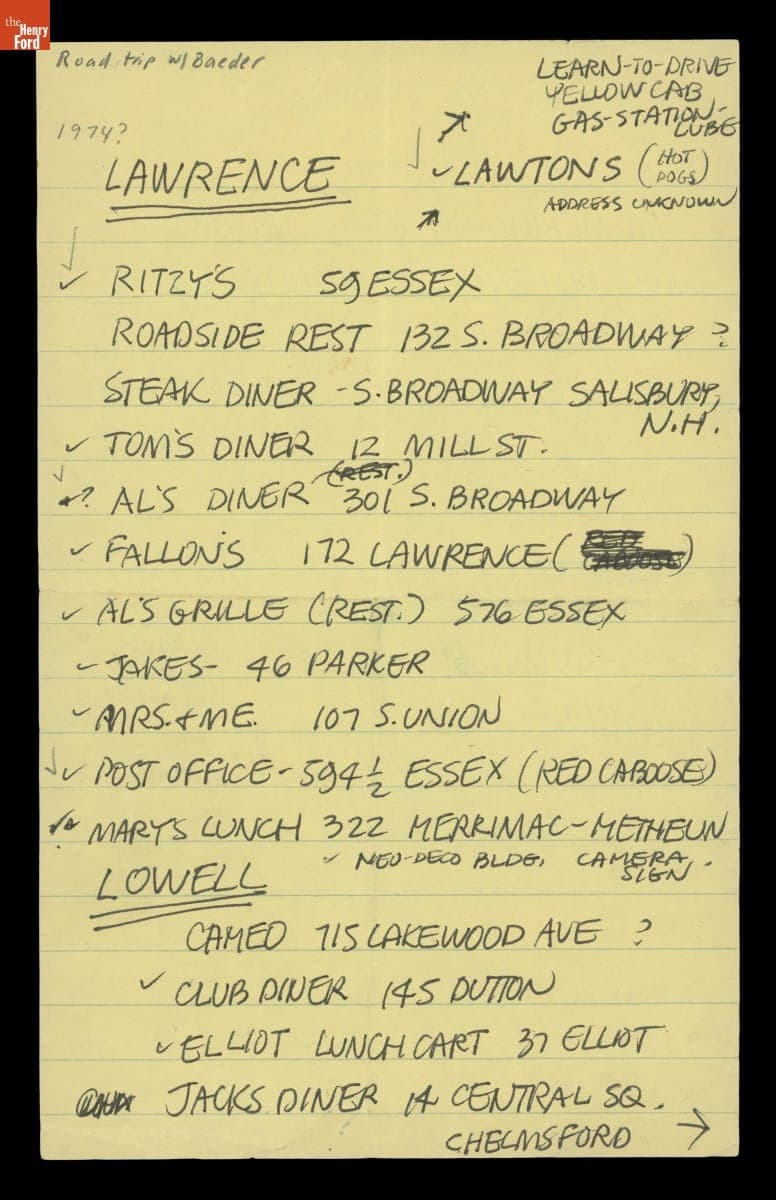 the
Henry
Ford
Road trip w/ Baeder
1974?
LEARN-TO-DRIVE
YELLOW CAB
GAS-STATION-
LUBE
LAWRENCE
✓ LAWTONS (HOT DOGS)
ADDRESS UNKNOWN
✓ RITZY'S 59 ESSEX
ROADSIDE REST 132 S. BROADWAY ?
STEAK DINER - S. BROADWAY SALISBURY,
N.H.
✓ TOM'S DINER 12 MILL ST.
(REST.)
? AL'S DINER 301 S. BROADWAY
✓ FALLON'S 172 LAWRENCE (RED CABOOSE)
✓ AL'S GRILLE (REST.) 576 ESSEX
✓ JAKES- 46 PARKER
✓ MRS. & ME. 107 S. UNION
✓ POST OFFICE - 594 1/2 ESSEX (RED CABOOSE)
MARY'S LUNCH 322 MERRIMAC - METHEUN
✓ NEO-DECO BLDG, CAMERA SIGN.
LOWELL
CAMEO 715 LAKEWOOD AVE ?
✓ CLUB DINER 145 DUTTON
✓ ELLIOT LUNCH CART 37 ELLIOT
JACKS DINER 14 CENTRAL SQ.
CHELMSFORD →